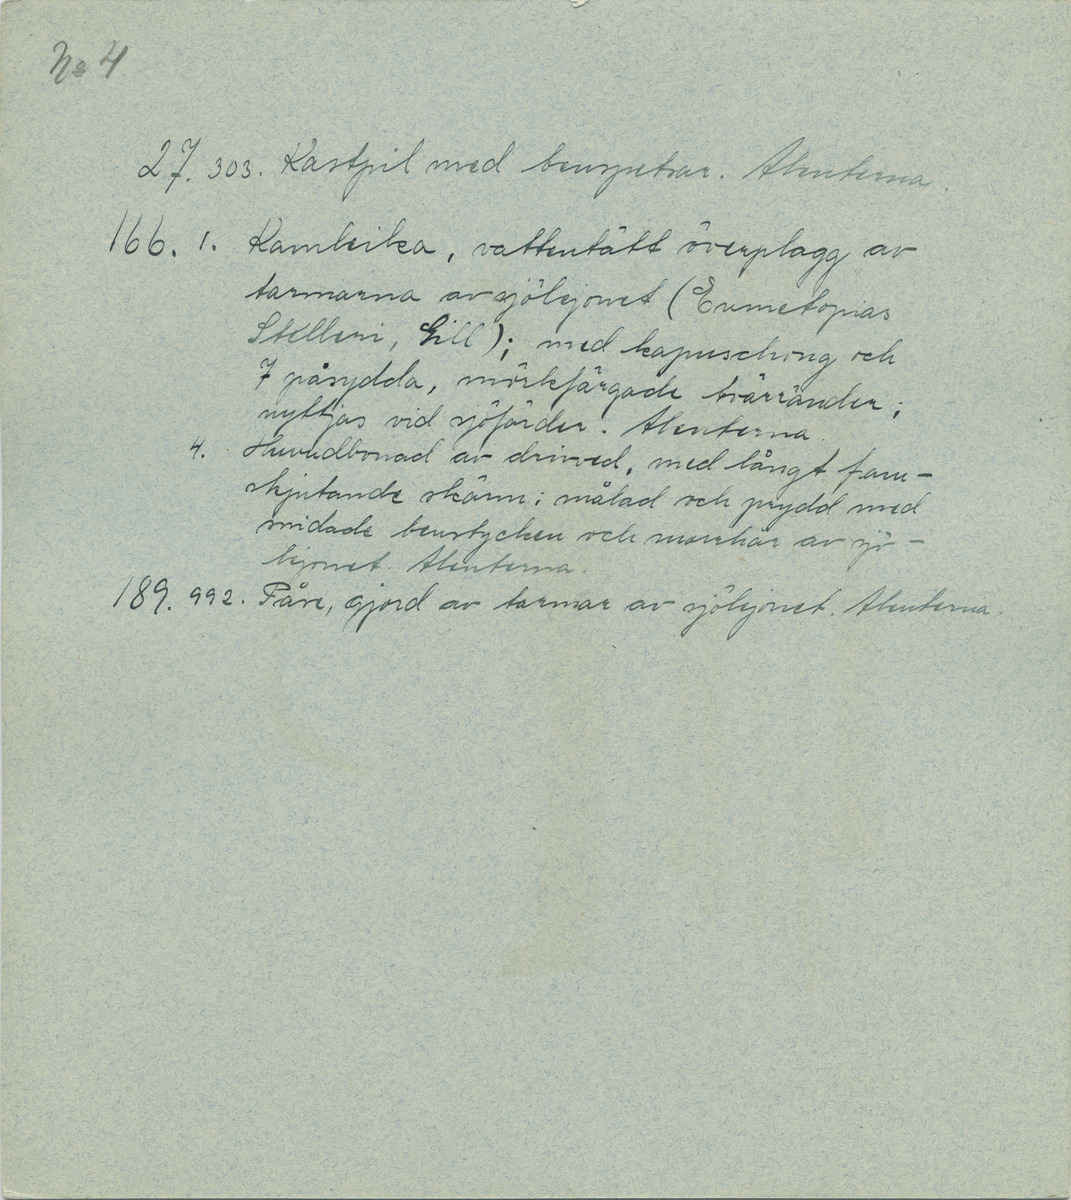 No 4
27. 303. Kastpil med benspetsar. Aleuterna.
166. 1. Kamleika, vattentätt överplagg av
tarmarna av sjölejonet (Eumetopias
Stelleri, Gill); med kapuschong och
7 påsydda, mörkfärgade tvärränder;
nyttjas vid sjöfärder. Aleuterna
4. Huvudbonad av drivved, med långt fram-
skjutande skärm; målad och prydd med
snidade benstycken och morrhår av sjö-
lejonet. Aleuterna.
189. 992. Påse, gjord av tarmar av sjölejonet. Aleuterna.